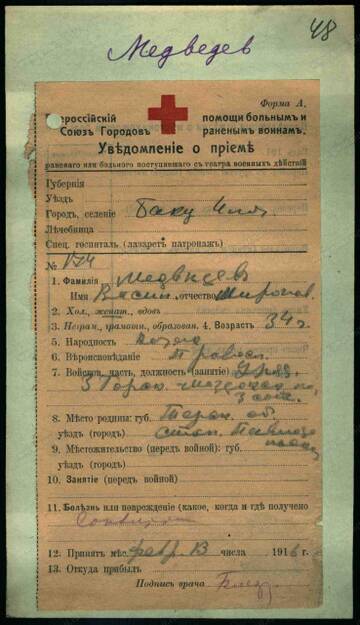 48
Медведев
Форма А.
Всероссійскій помощи больнымъ и
Союзъ Городовъ раненымъ воинамъ.
Увѣдомленіе о пріемѣ
раненаго или больного поступившаго съ театра военныхъ дѣйствій
Губернія
Уѣздъ
Городъ, селеніе Баку
Лѣчебница
Спец. госпиталь (лазаретъ патронажъ)
№ 174
1. Фамилія Медвѣдевъ
Имя отчество Миронов.
2. Хол., женат., вдовъ
3. Неграм., грамотн., образован. 4. Возрастъ 34 г.
5. Народность
6. Вѣроисповѣданіе Правос.
7. Войсков. часть, должность (занятіе) Уряд.
3
3 сот.
8. Мѣсто родины: губ. Терск. об.
уѣздъ (городъ) стан.
9. Мѣстожительство (передъ войной): губ.
уѣздъ (городъ)
10. Занятіе (передъ войной)
11. Болѣзнь или поврежденіе (какое, когда и гдѣ получено
12. Принятъ мѣс. февр. 13 числа 1916 г.
13. Откуда прибылъ
Подпись врача